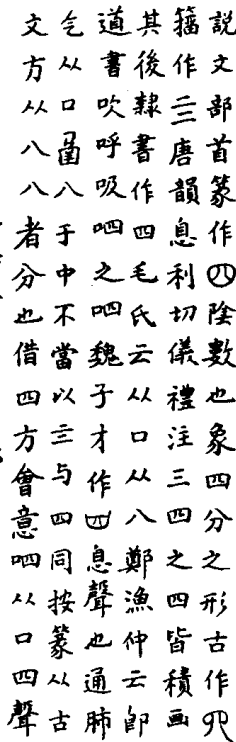 說文部首篆作四陰數也象四分之形古作𦉭
籀作亖唐韻息利切儀禮注三四之四皆積画
其後隸書作四毛氏云从口从八鄭漁仲云卽
道書吹呼吸呬之呬魏子才作四息聲也通肺
气从口八于中不當以亖与四同按篆从古
文方从八八者分也借四方會意呬从口四聲